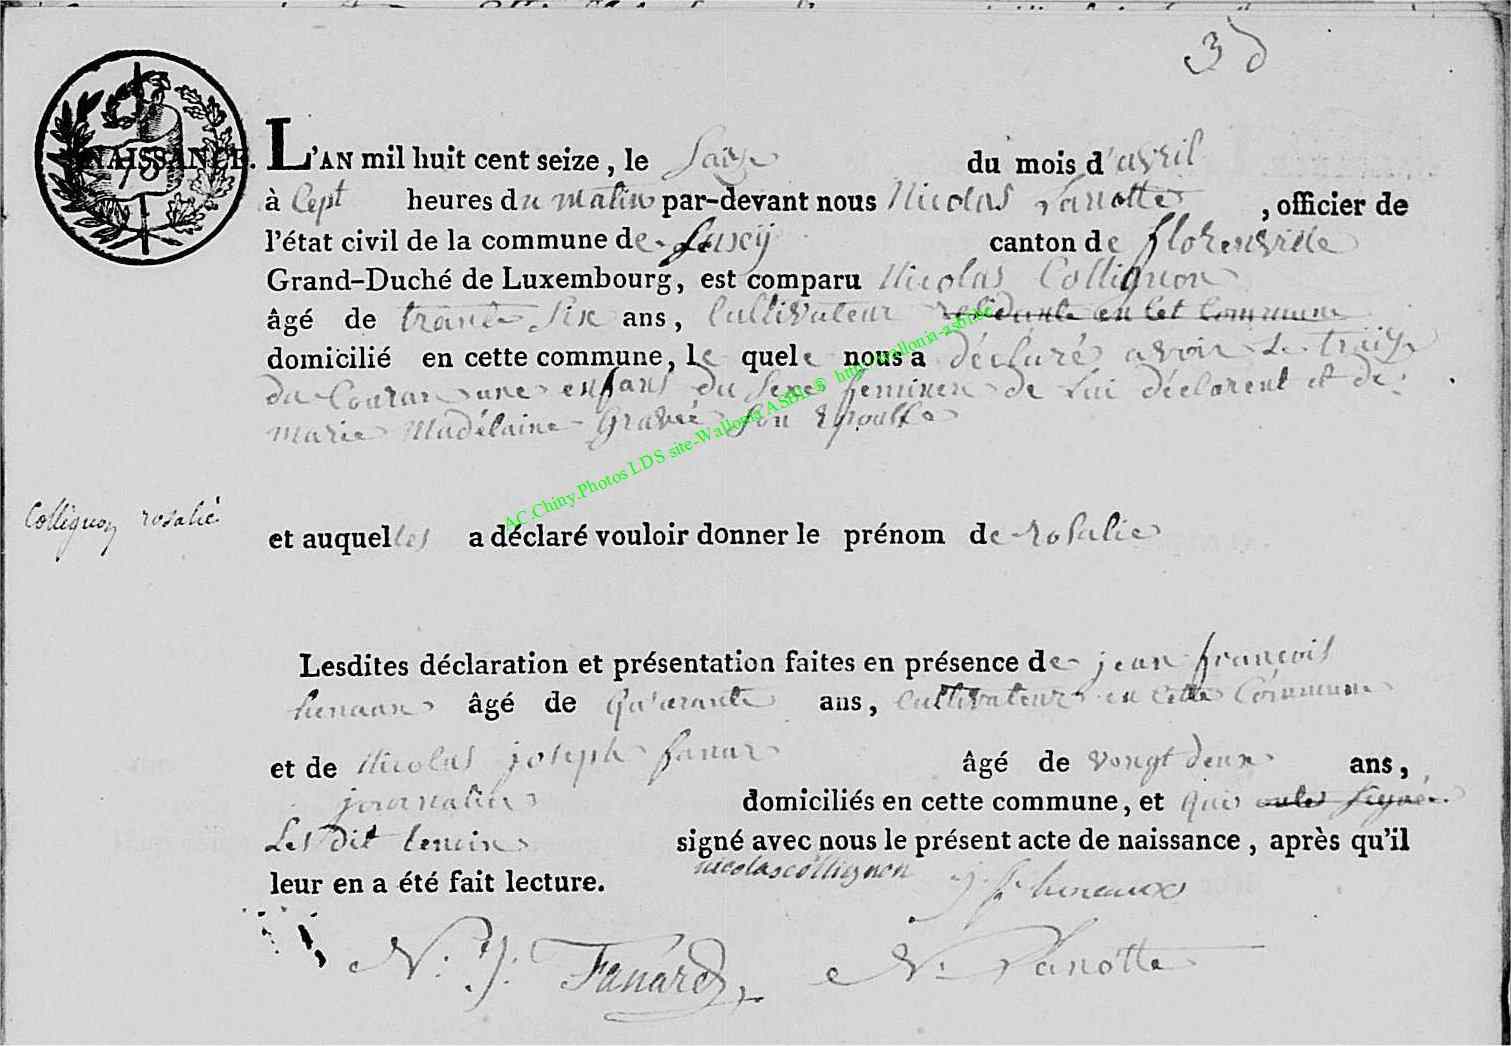 3d
NAISSANCE.
L'AN mil huit cent seize, le Saize du mois d'avril
à Sept heures du matin par-devant nous Nicolas Lanotte, officier de
l'état civil de la commune de canton de florenville
Grand-Duché de Luxembourg, est comparu Nicolas Collignon
âgé de trante Six ans, Cultivateur residante en Cet Commune
domicilié en cette commune, le quele nous a déclaré avoir Le traize
du Couran une enfans du Sexe feminen de Lui déclarent et de
marie Madélaine Gravié Son Epousse
Collignon rosalie
et auquelles a déclaré vouloir donner le prénom de rosalie
Lesdites déclaration et présentation faites en présence de jean françois
âgé de Quarante ans, Cultivateur en Cette Commune
et de Nicolas joseph fanar âgé de vongt deux ans,
journalier domiciliés en cette commune, et
Les Dit temoins signé avec nous le présent acte de naissance, après qu'il
leur en a été fait lecture. nicolas collignon J f
N: J: Fanard N: Lanotte
AC.Chiny.Photos LDS site-Wallonia ASBL © http://wallonia-asbl.be